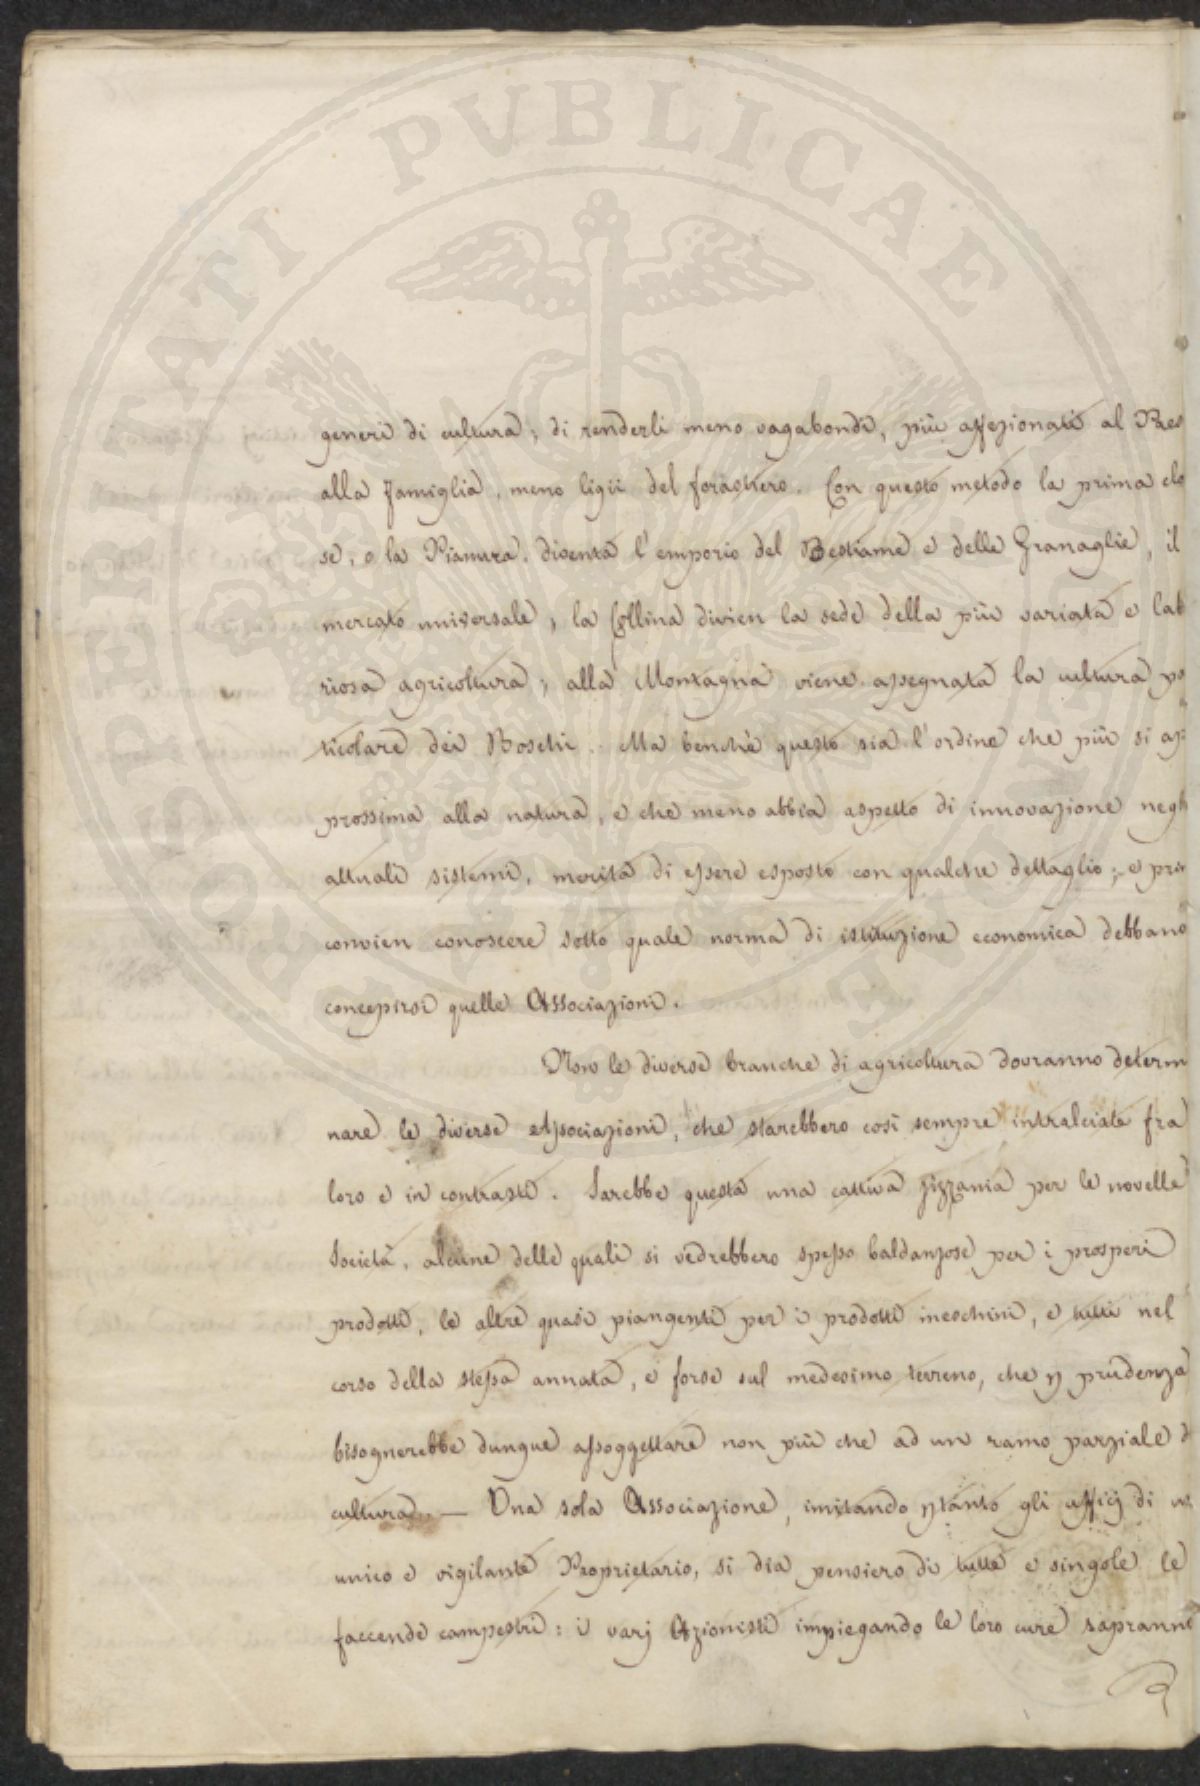 PROSPERITATI PUBLICAE AUGENDAE
generi di cultura; di renderli meno vagabondi, più affezionati al Paes
alla famiglia, meno ligii del forastiero. Con questo metodo la prima cla
se, o la Pianura, diventa l'emporio del Bestiame e delle Granaglie, il
mercato universale; la Collina divien la sede della più variata e lab
riosa agricoltura; alla Montagna viene assegnata la cultura pa
ticolare dei Boschi. Ma benchè questo sia l'ordine che più si ap
prossima alla natura, e che meno abbia aspetto di innovazione negli
attuali sistemi, merita di essere esposto con qualche dettaglio; e pri
convien conoscere sotto quale norma di istituzione economica debbano
concepirsi quelle Associazioni.
Non le diverse branche di agricoltura dovranno determ
nare le diverse Associazioni, che starebbero così sempre intralciate fra
loro e in contrasti. Sarebbe questa una cattiva zizzania per le novelle
Società, alcune delle quali si vedrebbero spesso baldanzose per i prosperi
prodotti, le altre quasi piangenti per i prodotti meschini, e tutti nel
corso della stessa annata, e forse sul medesimo terreno, che p prudenza
bisognerebbe dunque assoggettare non più che ad un ramo parziale d
cultura. — Una sola Associazione, imitando ptanto gli ufficj di un
unico e vigilante Proprietario, si dia pensiero di tutte e singole le
faccende campestri: i varj Azionisti impiegando le loro cure sapranno